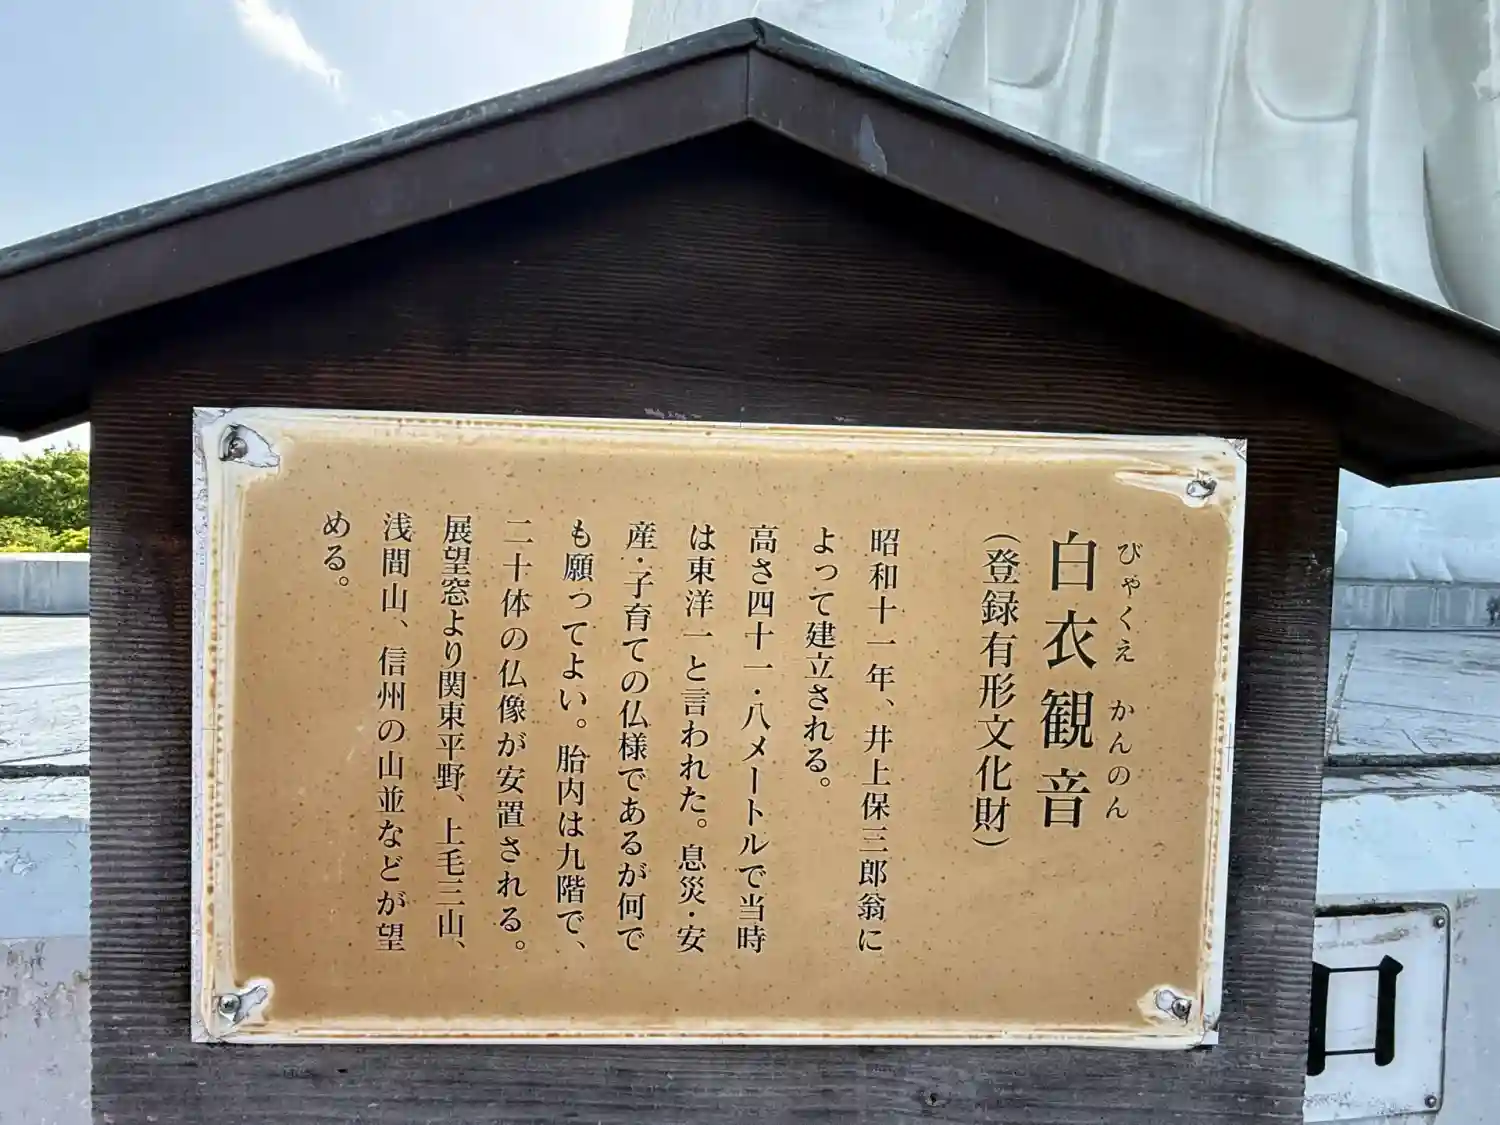 びゃくえ かんのん
白衣観音
(登録有形文化財)
昭和十一年、井上保三郎翁に
よって建立される。
高さ四十一・八メートルで当時
は東洋一と言われた。息災・安
産・子育ての仏様であるが何で
も願ってよい。胎内は九階で、
二十体の仏像が安置される。
展望窓より関東平野、上毛三山、
浅間山、信州の山並などが望
める。
口